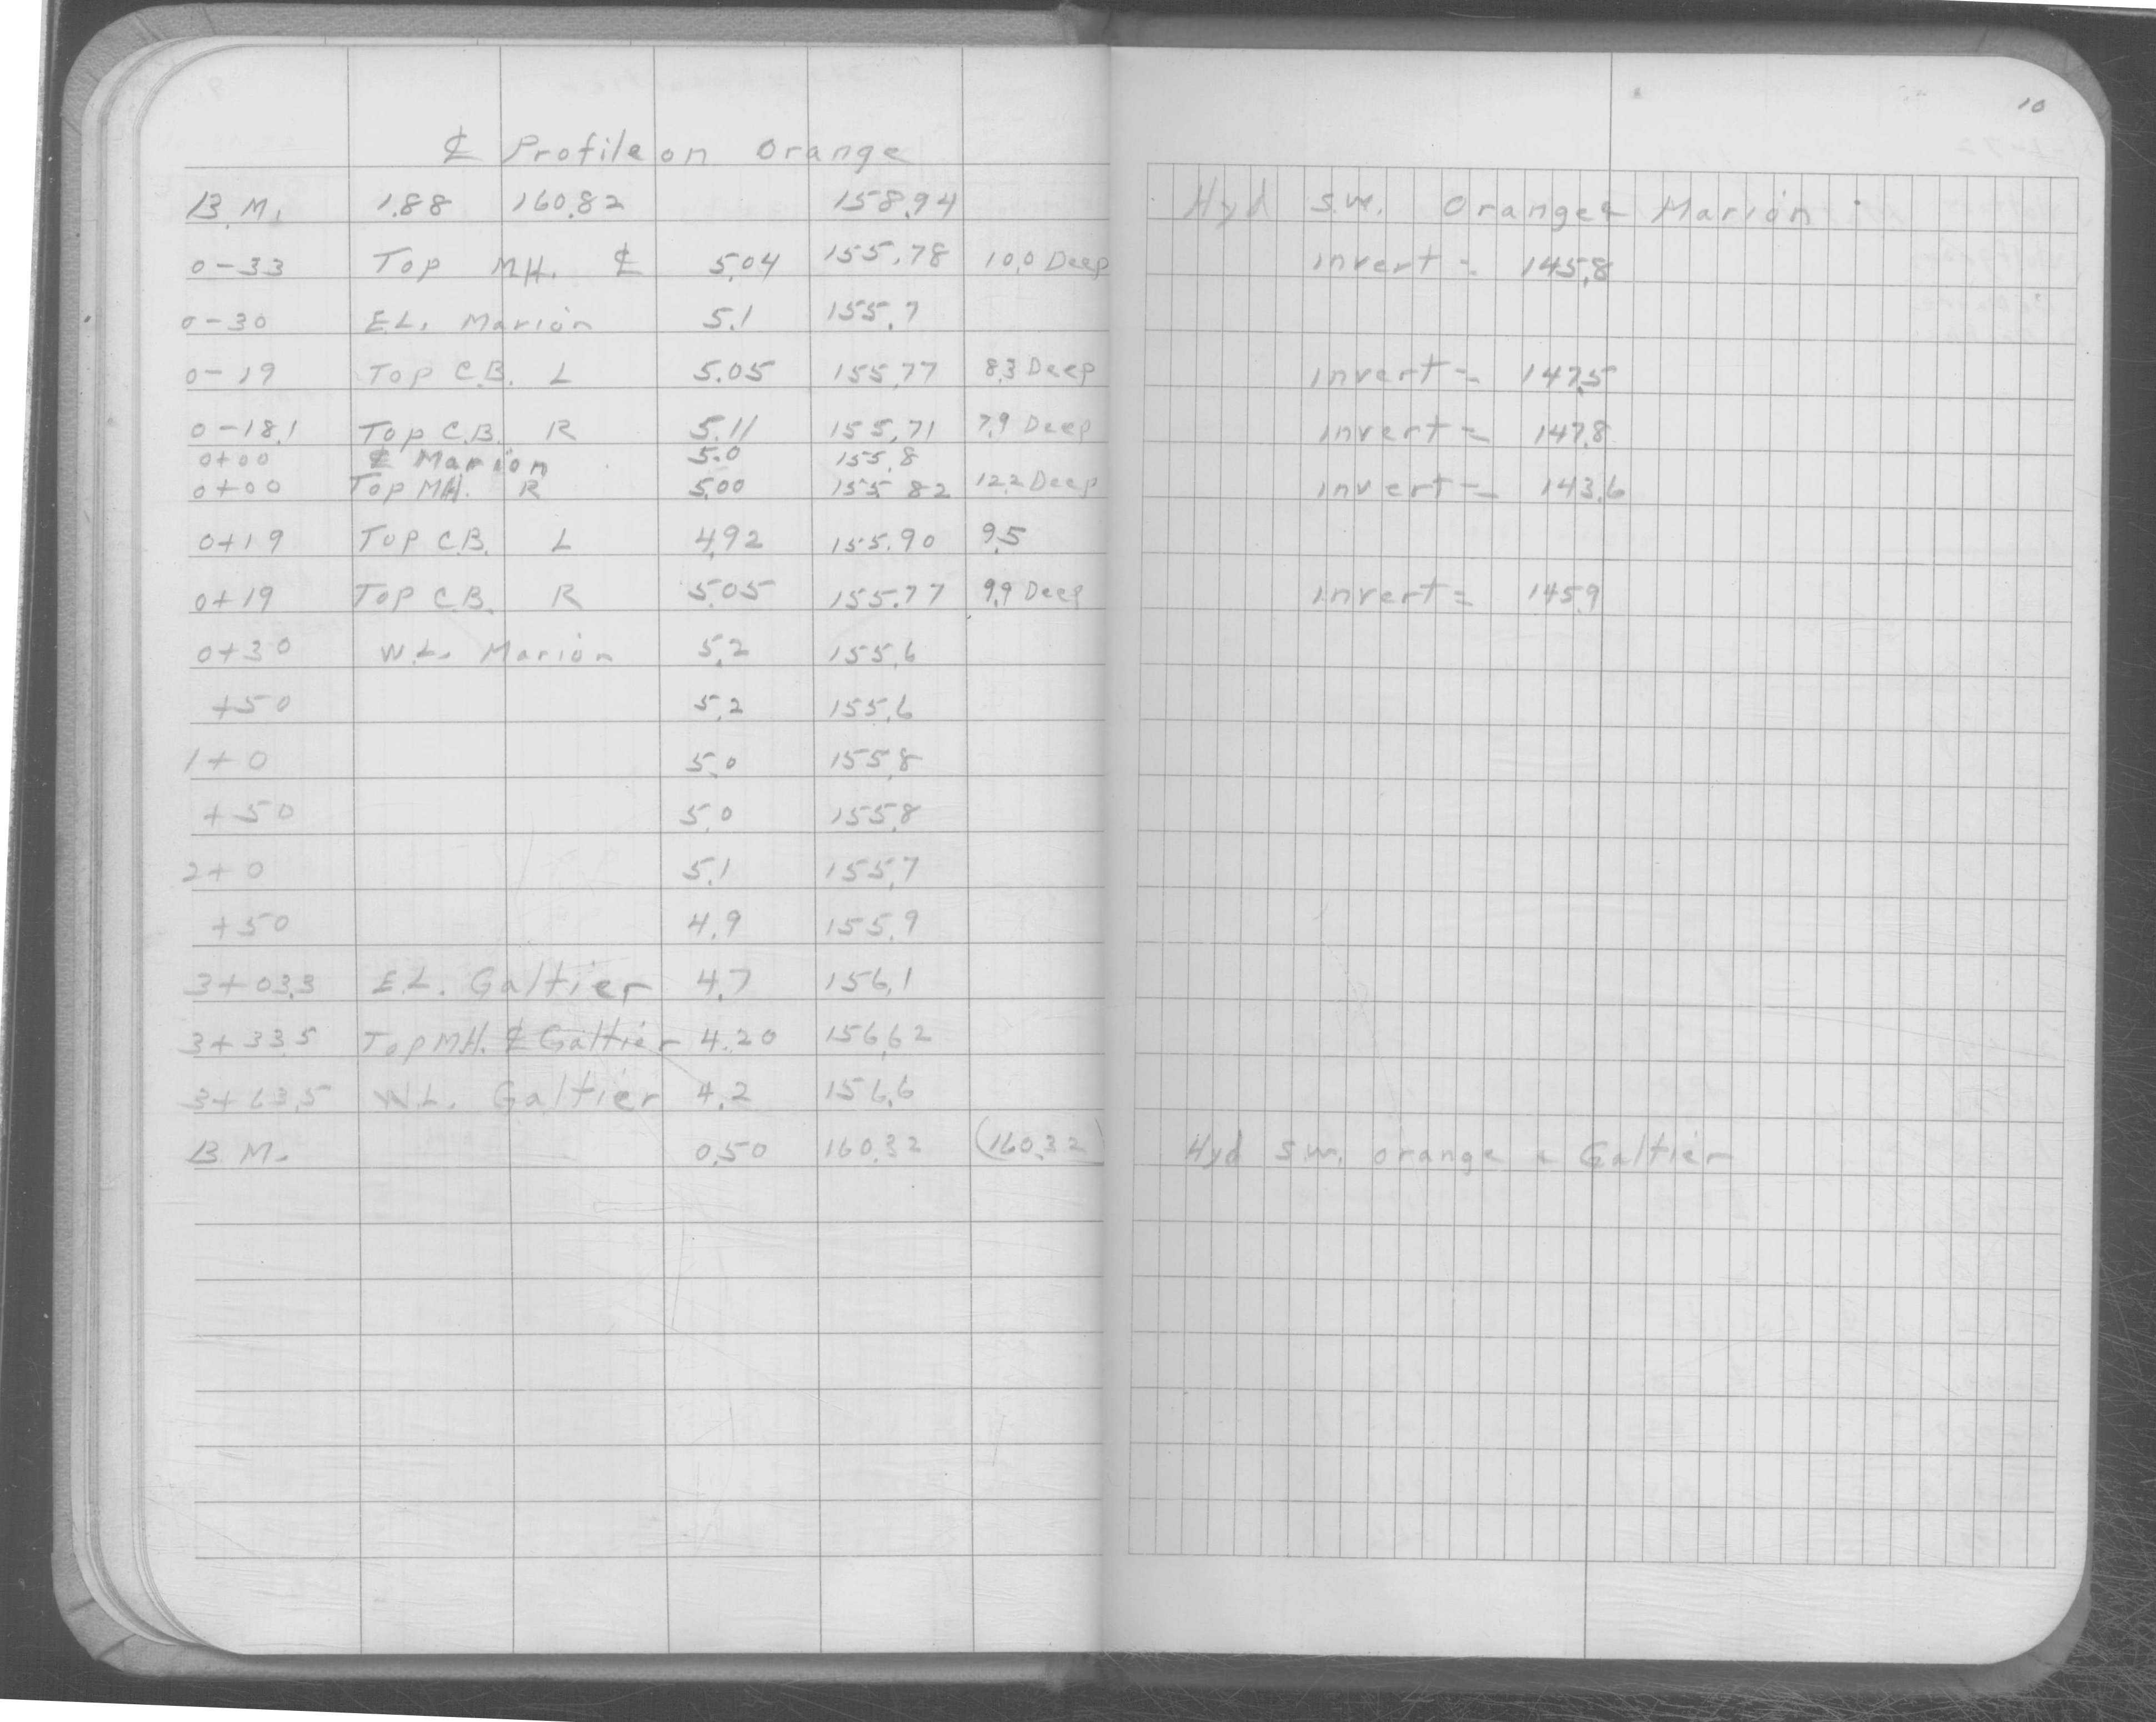 10
℄ Profile on Orange
B.M. 1.88 160.82 158.94 Hyd s.w. Orange & Marion
0-33 Top MH. ℄ 5.04 155.78 10.0 Deep invert = 145.8
0-30 E.L. Marion 5.1 155.7
0-19 Top C.B. L 5.05 155.77 8.3 Deep invert = 147.5
0-18.1 Top C.B. R 5.11 155.71 7.9 Deep invert = 147.8
0+00 ℄ Marion 5.0 155.8
0+00 Top MH. R 5.00 155.82 12.2 Deep invert = 143.6
0+19 Top C.B. L 4.92 155.90 9.5
0+19 Top C.B. R 5.05 155.77 9.9 Deep invert = 145.9
0+30 W.L. Marion 5.2 155.6
+50 5.2 155.6
1+0 5.0 155.8
+50 5.0 155.8
2+0 5.1 155.7
+50 4.9 155.9
3+03.3 E.L. Galtier 4.7 156.1
3+33.5 Top MH. ℄ Galtier 4.20 156.62
3+63.5 W.L. Galtier 4.2 156.6
B.M. 0.50 160.32 (160.32) Hyd s.w. orange & Galtier